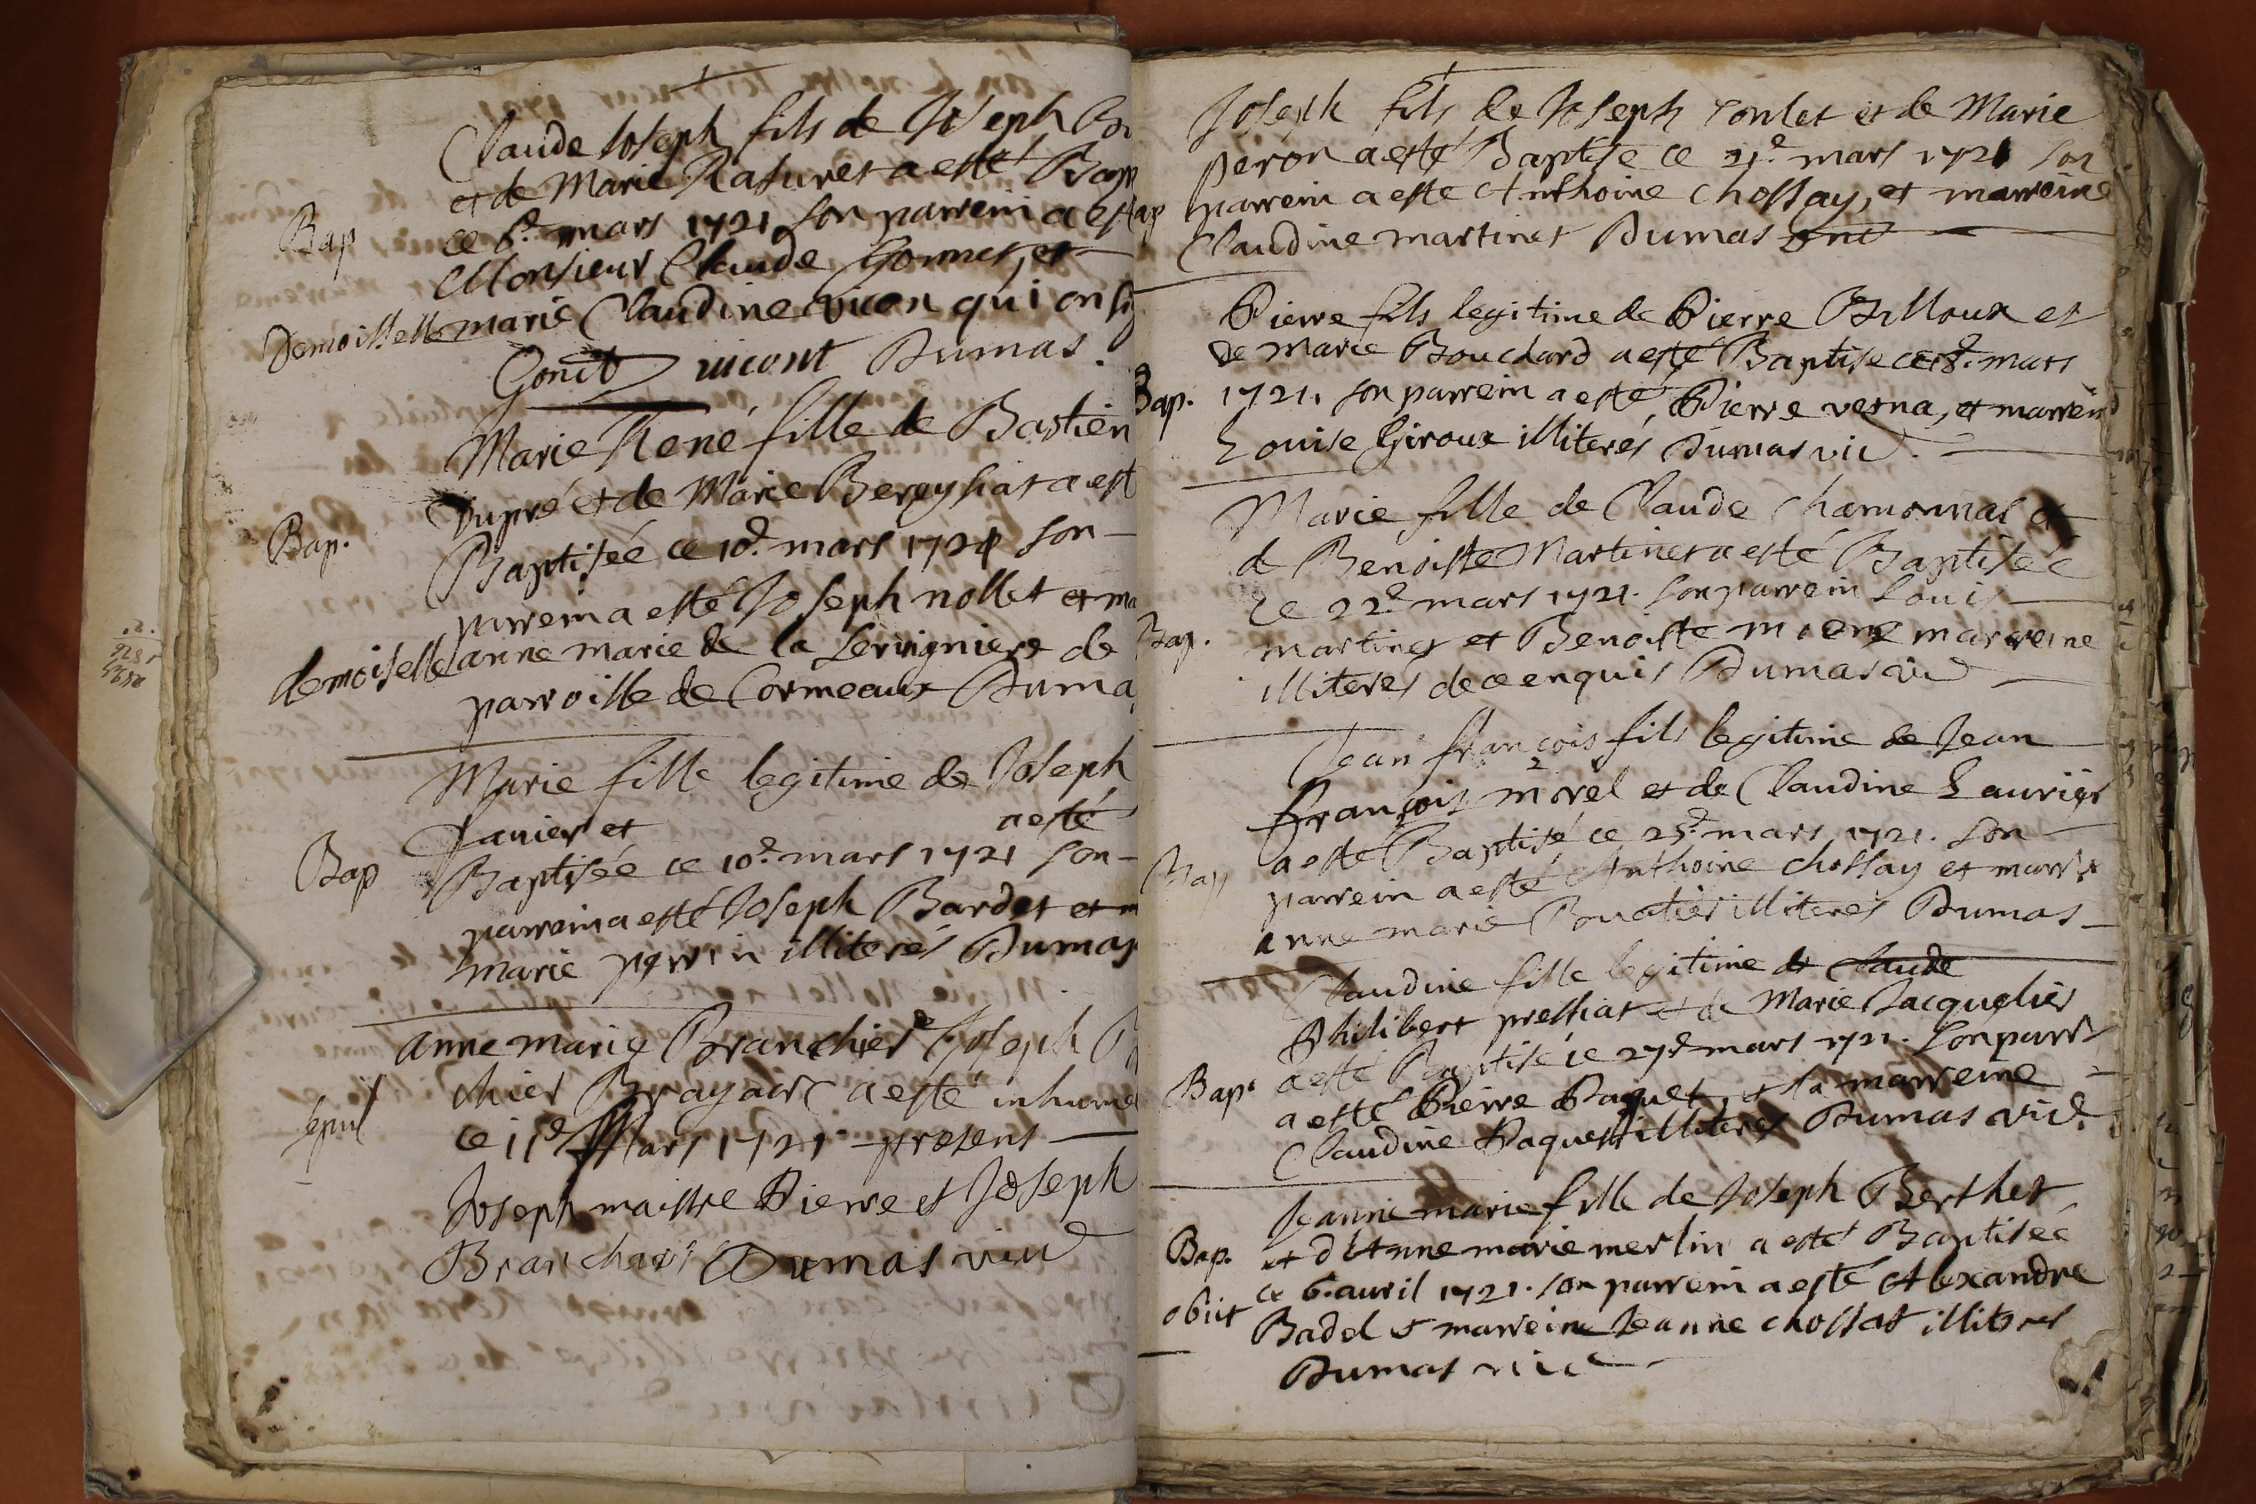 Claude Joseph fils de Joseph
et de Marie Rasurel a esté Bap
Bap
ce 6e. mars 1721 son parrein a est
Monsieur Claude Gonnet, et
Demoiselle marie Claudine vicon qui on si
Gonet vicont Dumas.
Marie René fille de Bastien
Dupré et de Marie Bereysiat a est
Bap.
Baptisée ce 10e. mars 1721 son
parrein a esté Joseph nollet et ma
demoiselle anne marie de la Servigniere de
parroisse de Cormeaux Duma
Marie fille legitime de Joseph
Janier et a esté
Bap
Baptisée ce 10e. mars 1721 son
parrein a esté Joseph Bardet et m
marie perrin illiterés Dumas
anne marie Branchier de Joseph B
chier Brayard a esté inhumé
sepul
ce 11e Mars 1721 presens
Joseph maistre Pierre et Joseph
Branchard Dumas vicd
Joseph fils de Joseph Conlet et de Marie
peron a esté Baptisé ce 21e. mars 1721 son
Bap
parrein a este Anthoine Chossay, et marreine
Claudine martinet Dumas
Pierre fils legitime de Pierre Billoux et
de marie Bouchard a esté Baptise ce mars
Bap.
1721. son parrein a esté Pierre verna, et marrein
Louise Giroux illiterés Dumas vic
Marie fille de Claude Chamonnas et
d Benoiste Martinet a esté Baptisée
ce 22e mars 1721. son parrein Louis
Bap.
martinet et Benoiste marreine
illiterés de ce enquis Dumas vic
Jean françois fils legitime de Jean
François morel et de Claudine Laurier
a este Baptisé ce 25e. mars 1721. son
Bap
parrein a esté Anthoine chossay et marr
anne marie Bouatier illiterés Dumas
Claudine fille legitime de Claude
Philibert pressiat et de Marie Jacquelier
a esté Baptisé ce 27e mars 1721. son parr
Bap.
a esté Pierre Paquet et la marreine
Claudine Paquet illiteres Dumas vic.
Jeanne marie fille de Joseph Berthet
Bap.
et d Anne marie merlin a esté Baptisée
ce 6. avril 1721. son parrein a esté Alexandre
obiit
Badel et marreine Jeanne chossat illiteres
Dumas vic